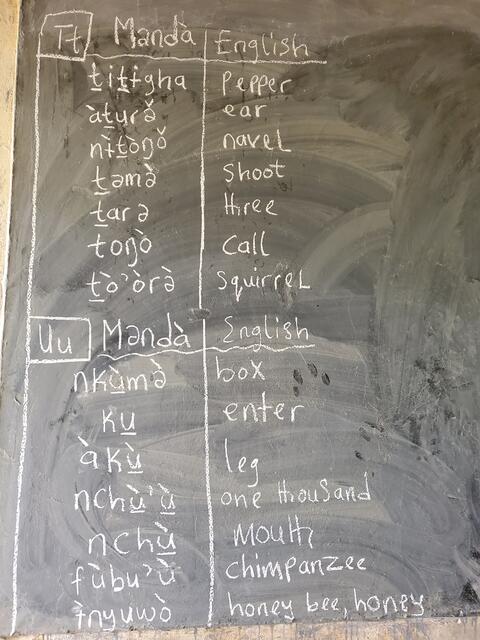 Tt Məndà English
ṯiṯɨgha Pepper
àṯurə̌ ear
nɨ̀ṯoŋǒ navel
ṯəmə̀ Shoot
ṯarə three
toŋò Call
ṯò'òrə̀ Squirrel
Uu Məndà English
nkù̱mə̀ box
ku̱ enter
àkù̱ leg
nchù̱'ù̱ one thousand
nchù̱ Mouth
fùbu'ù̱ chimpanzee
ɨnyuwò honey bee, honey